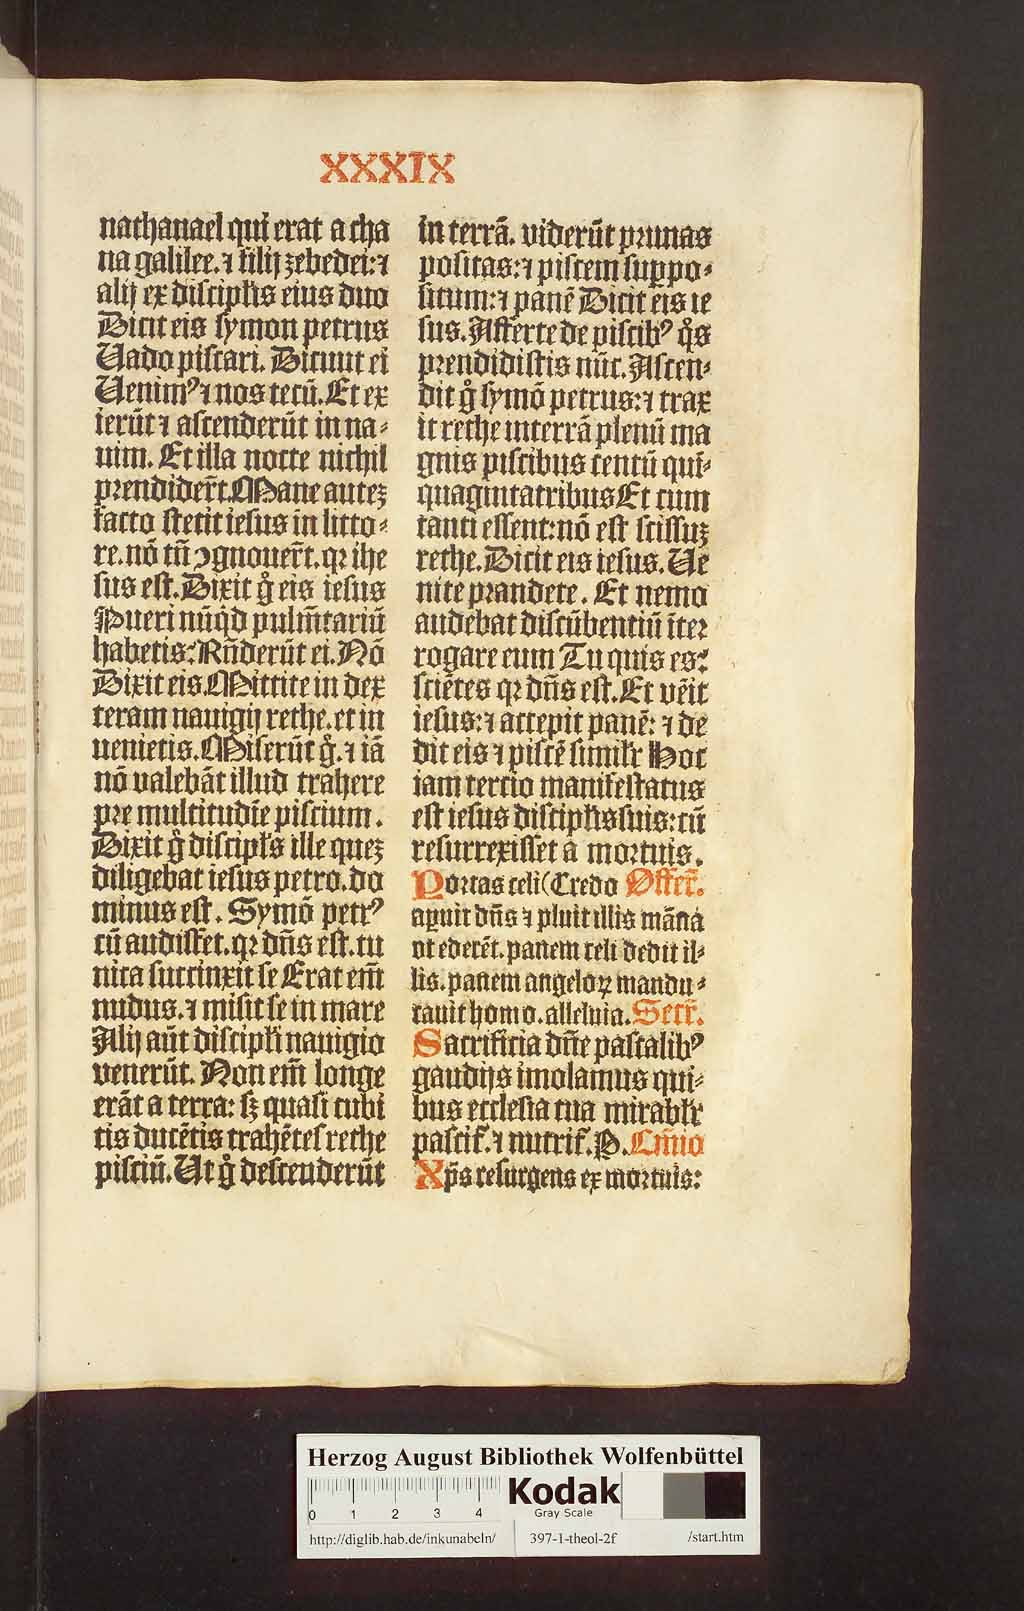 XXXIX
nathanael qui erat a cha
na galilee. ⁊ filij zebedei: ⁊
alij ex discipl̕is eius duo
Dicit eis symon petrus
Uado piscari. Dicunt ei
Uenimꝰ ⁊ nos tecū. Et ex
ierūt ⁊ ascenderūt in na⸗
uim. Et illa nocte nichil
prendider̄t. Mane auteꝫ
facto stetit iesus in litto⸗
re. nō tn̄ ꝯgnouer̄t. qꝛ ihe
sus est. Dixit g̊ eis iesus
Pueri nūqͥd pulm̄tariū
habetis: Rn̄derūt ei. Nō
Dixit eis. Mittite in dex
teram nauigij rethe. et in
uenietis. Miserūt g̊. ⁊ iā
nō valebāt illud trahere
pre multitudīe piscium.
Dixit g̊ discipl̕s ille queꝫ
diligebat iesus petro. do
minus est. Symō petrꝰ
cū audisset. qꝛ dn̄s est. tu
nica succinxit se Erat em̄
nudus. ⁊ misit se in mare
Alij aūt discipl̕i nauigio
venerūt. Non em̄ longe
erāt a terra: sꝫ quasi cubi
tis ducētis trahētes rethe
pisciū. Ut g̊ descenderūt
in terrā. viderūt prunas
positas: ⁊ piscem suppo⸗
situm: ⁊ panē Dicit eis ie
sus. Afferte de piscibꝰ qͦs
prendidistis nūc. Ascen⸗
dit g̊ symō petrus: ⁊ trax
it rethe in terrā plenū ma
gnis piscibus centū qui⸗
quagintatribus Et cum
tanti essent: nō est scissuꝫ
rethe. Dicit eis iesus. Ue
nite prandete. Et nemo
audebat discūbentiū īter
rogare eum Tu quis es:
sciētes qꝛ dn̄s est. Et vēit
iesus: ⁊ accepit panē: ⁊ de
dit eis ⁊ piscē simil̕r Hoc
iam tercio manifestatus
est iesus discipl̕is suis: cū
resurrexisset a mortuis.
Portas celi (Credo Offer̄.
aꝑuit dn̄s ⁊ pluit illis māna
ut ederēt. panem celi dedit il⸗
lis. panem angeloꝝ mandu⸗
cauit homo. alleluia. Secr̄.
Sacrificia dn̄e pascalibꝰ
gaudijs imolamus qui⸗
bus ecclesia tua mirabl̕r
pascit̕. ⁊ nutrit̕. P. Cm̄io
Xp̄s resurgens ex mortuis:
Herzog August Bibliothek Wolfenbüttel
0 1 2 3 4
Kodak
Gray Scale
http://diglib.hab.de/inkunabeln/ 397-1-theol-2f /start.htm